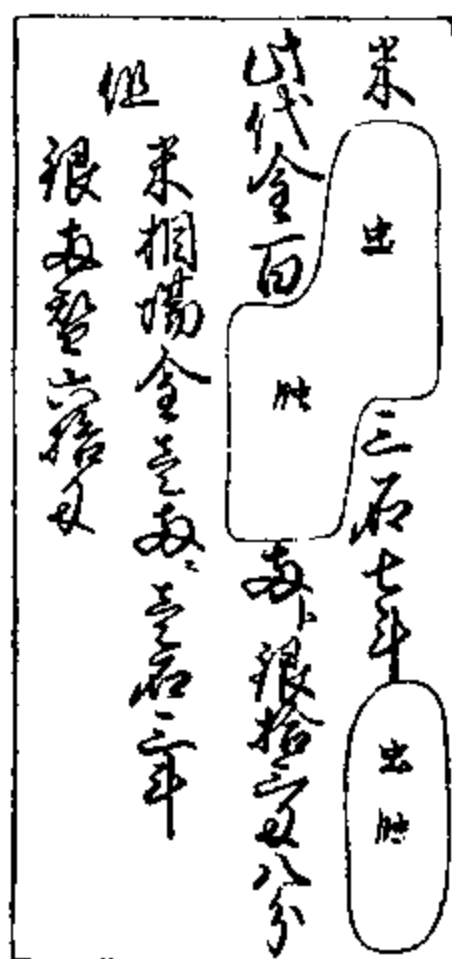 米虫三石七斗虫蝕
此代金百蝕両ト銀拾三匁八分
但
米相場金壱両ニ壱石三斗
銀両替六拾匁